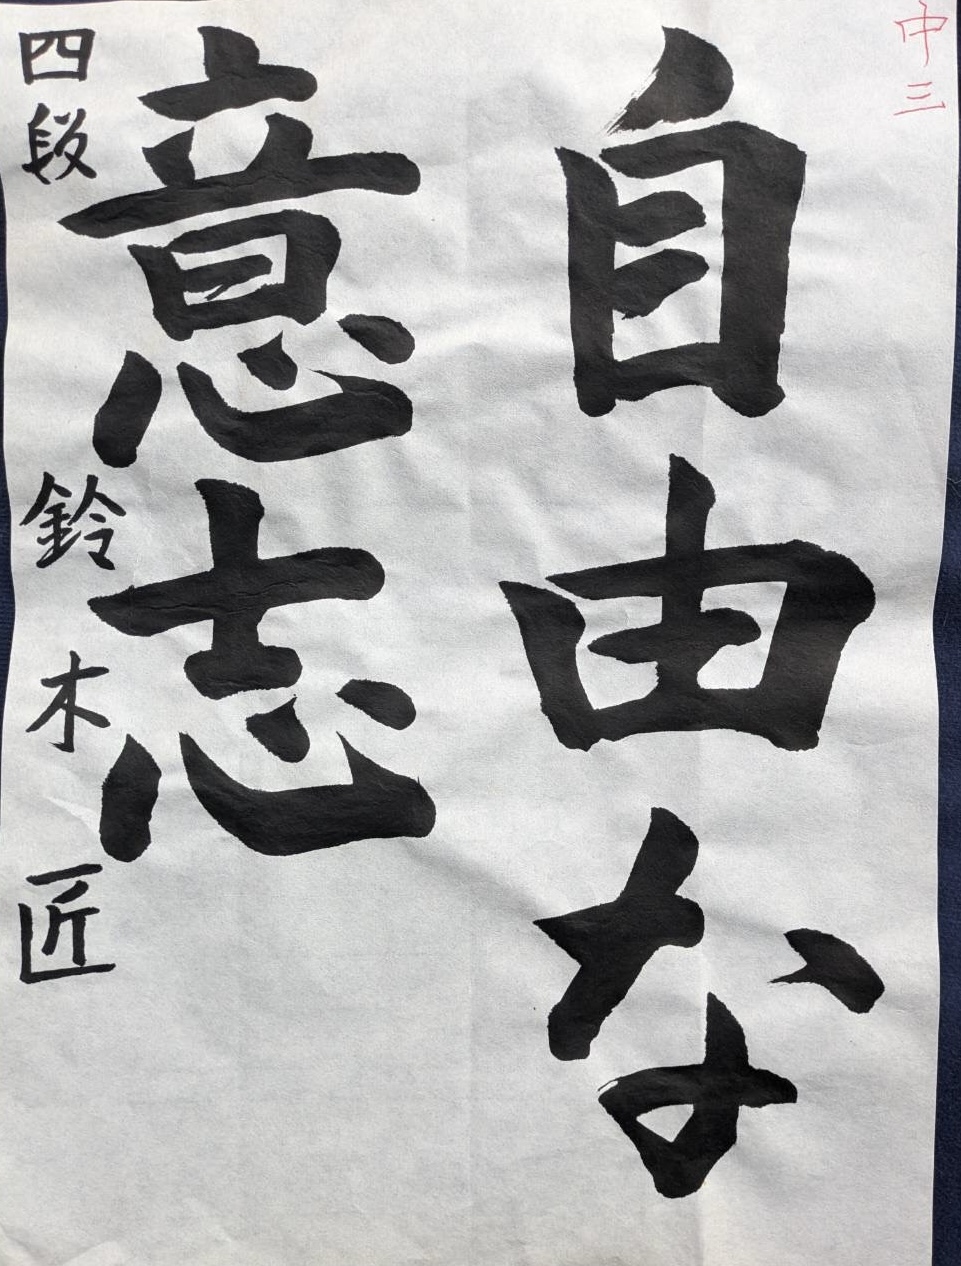 中三
自由な
意志
四段 鈴木 匠